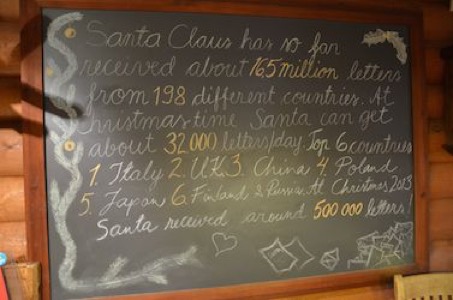 Santa Claus has so far
received about 16.5 million letters
from 198 different countries. At
Christmas time Santa can get
about 32 000 letters/day. Top 6 countries
1. Italy 2. UK 3. China 4. Poland
5. Japan 6. Finland & Russia. At Christmas 2013
Santa received around 500 000 letters!